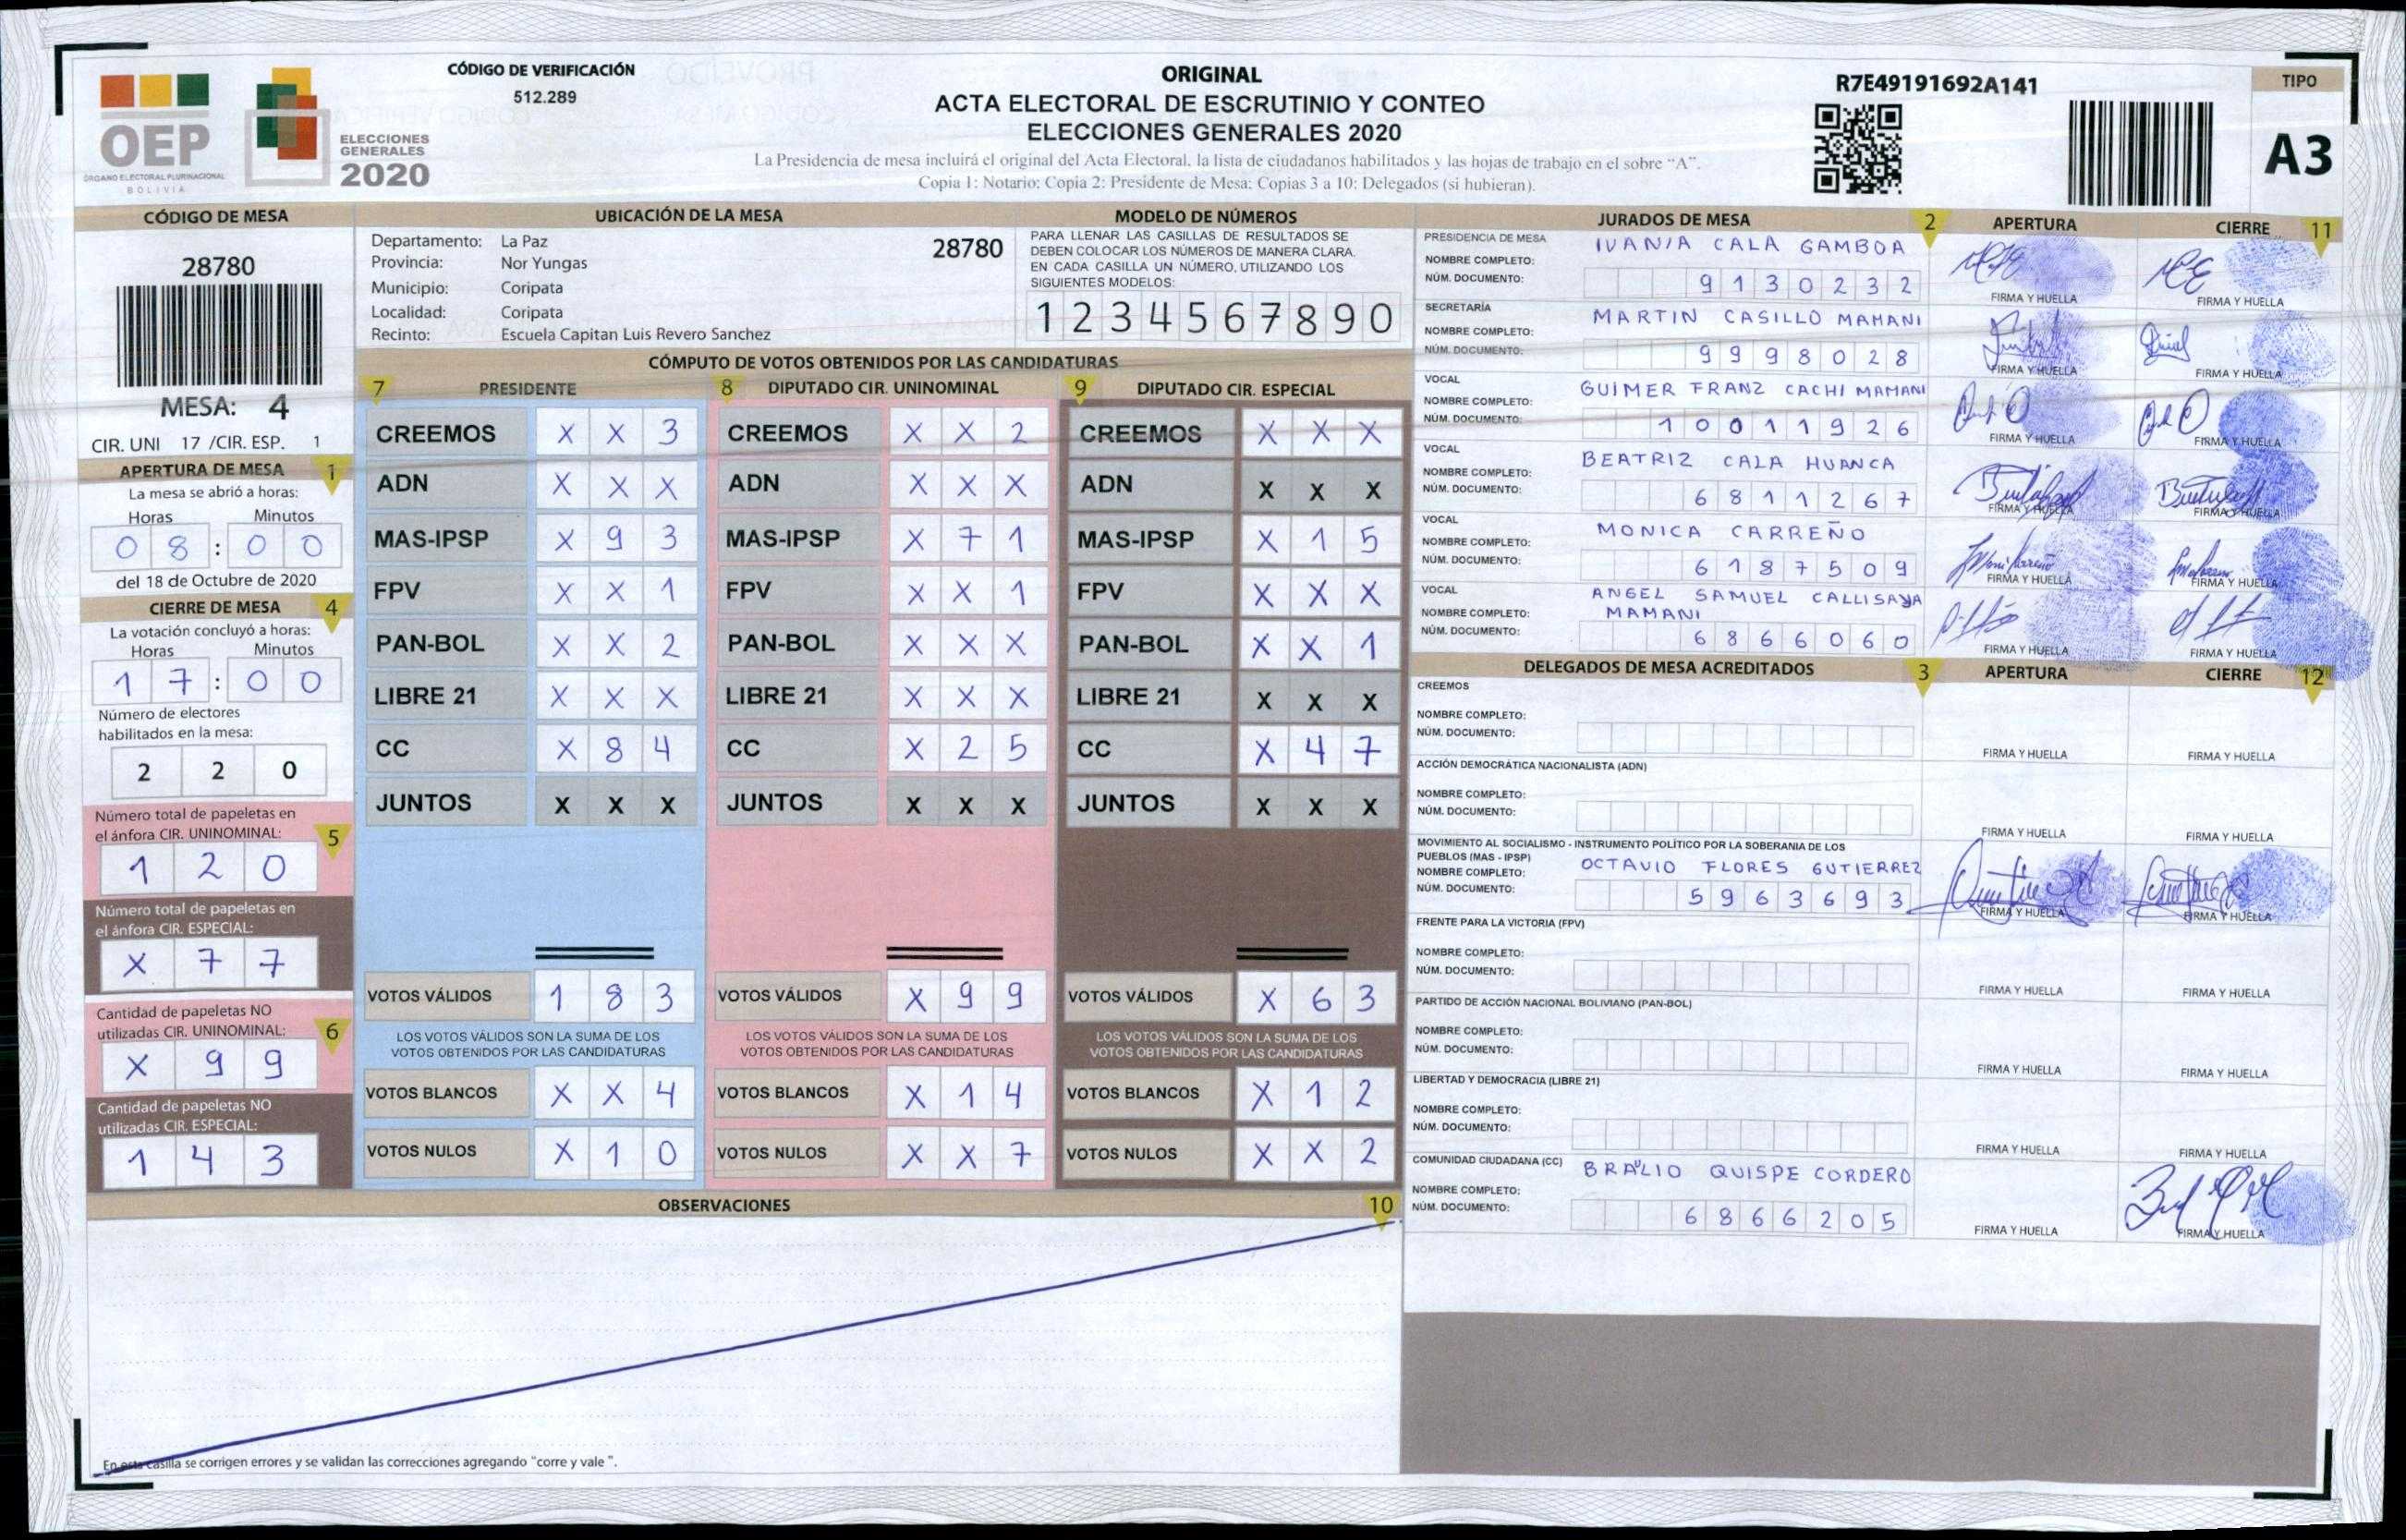 CÓDIGO DE VERIFICACIÓN
512.289
OEP
ÓRGANO ELECTORAL PLURINACIONAL
BOLIVIA
ELECCIONES
GENERALES
2020
ORIGINAL
ACTA ELECTORAL DE ESCRUTINIO Y CONTEO
ELECCIONES GENERALES 2020
La Presidencia de mesa incluirá el original del Acta Electoral, la lista de ciudadanos habilitados y las hojas de trabajo en el sobre "A".
Copia 1: Notario; Copia 2: Presidente de Mesa; Copias 3 a 10: Delegados (si hubieran).
R7E49191692A141
TIPO
A3
CÓDIGO DE MESA
28780
MESA: 4
CIR. UNI 17 /CIR. ESP. 1
APERTURA DE MESA 1
La mesa se abrió a horas:
Horas Minutos
0 8 : 0 0
del 18 de Octubre de 2020
CIERRE DE MESA 4
La votación concluyó a horas:
Horas Minutos
1 7 : 0 0
Número de electores
habilitados en la mesa:
2 2 0
Número total de papeletas en
el ánfora CIR. UNINOMINAL: 5
1 2 0
Número total de papeletas en
el ánfora CIR. ESPECIAL:
X 7 7
Cantidad de papeletas NO
utilizadas CIR. UNINOMINAL: 6
X 9 9
Cantidad de papeletas NO
utilizadas CIR. ESPECIAL:
1 4 3
UBICACIÓN DE LA MESA
Departamento: La Paz 28780
Provincia: Nor Yungas
Municipio: Coripata
Localidad: Coripata
Recinto: Escuela Capitan Luis Revero Sanchez
MODELO DE NÚMEROS
PARA LLENAR LAS CASILLAS DE RESULTADOS SE
DEBEN COLOCAR LOS NÚMEROS DE MANERA CLARA.
EN CADA CASILLA UN NÚMERO, UTILIZANDO LOS
SIGUIENTES MODELOS:
1 2 3 4 5 6 7 8 9 0
CÓMPUTO DE VOTOS OBTENIDOS POR LAS CANDIDATURAS
7 PRESIDENTE 8 DIPUTADO CIR. UNINOMINAL 9 DIPUTADO CIR. ESPECIAL
CREEMOS X X 3 CREEMOS X X 2 CREEMOS X X X
ADN X X X ADN X X X ADN X X X
MAS-IPSP X 9 3 MAS-IPSP X 7 1 MAS-IPSP X 1 5
FPV X X 1 FPV X X 1 FPV X X X
PAN-BOL X X 2 PAN-BOL X X X PAN-BOL X X 1
LIBRE 21 X X X LIBRE 21 X X X LIBRE 21 X X X
CC X 8 4 CC X 2 5 CC X 4 7
JUNTOS X X X JUNTOS X X X JUNTOS X X X
VOTOS VÁLIDOS 1 8 3 VOTOS VÁLIDOS X 9 9 VOTOS VÁLIDOS X 6 3
LOS VOTOS VÁLIDOS SON LA SUMA DE LOS LOS VOTOS VÁLIDOS SON LA SUMA DE LOS LOS VOTOS VÁLIDOS SON LA SUMA DE LOS
VOTOS OBTENIDOS POR LAS CANDIDATURAS VOTOS OBTENIDOS POR LAS CANDIDATURAS VOTOS OBTENIDOS POR LAS CANDIDATURAS
VOTOS BLANCOS X X 4 VOTOS BLANCOS X 1 4 VOTOS BLANCOS X 1 2
VOTOS NULOS X 1 0 VOTOS NULOS X X 7 VOTOS NULOS X X 2
OBSERVACIONES 10
En esta casilla se corrigen errores y se validan las correcciones agregando "corre y vale ".
JURADOS DE MESA 2 APERTURA CIERRE 11
PRESIDENCIA DE MESA
NOMBRE COMPLETO: IVANIA CALA GAMBOA
NÚM. DOCUMENTO: 9 1 3 0 2 3 2
FIRMA Y HUELLA FIRMA Y HUELLA
SECRETARÍA
NOMBRE COMPLETO: MARTIN CASILLO MAMANI
NÚM. DOCUMENTO: 9 9 9 8 0 2 8
FIRMA Y HUELLA FIRMA Y HUELLA
VOCAL
NOMBRE COMPLETO: GUIMER FRANZ CACHI MAMANI
NÚM. DOCUMENTO: 1 0 0 1 1 9 2 6
FIRMA Y HUELLA FIRMA Y HUELLA
VOCAL
NOMBRE COMPLETO: BEATRIZ CALA HUANCA
NÚM. DOCUMENTO: 6 8 1 1 2 6 7
FIRMA Y HUELLA FIRMA Y HUELLA
VOCAL
NOMBRE COMPLETO: MONICA CARREÑO
NÚM. DOCUMENTO: 6 1 8 7 5 0 9
FIRMA Y HUELLA FIRMA Y HUELLA
VOCAL
NOMBRE COMPLETO: ANGEL SAMUEL CALLISAYA
MAMANI
NÚM. DOCUMENTO: 6 8 6 6 0 6 0
FIRMA Y HUELLA FIRMA Y HUELLA
DELEGADOS DE MESA ACREDITADOS 3 APERTURA CIERRE 12
CREEMOS
NOMBRE COMPLETO:
NÚM. DOCUMENTO:
FIRMA Y HUELLA FIRMA Y HUELLA
ACCIÓN DEMOCRÁTICA NACIONALISTA (ADN)
NOMBRE COMPLETO:
NÚM. DOCUMENTO:
FIRMA Y HUELLA FIRMA Y HUELLA
MOVIMIENTO AL SOCIALISMO - INSTRUMENTO POLÍTICO POR LA SOBERANIA DE LOS
PUEBLOS (MAS - IPSP)
NOMBRE COMPLETO: OCTAVIO FLORES GUTIERREZ
NÚM. DOCUMENTO: 5 9 6 3 6 9 3
FIRMA Y HUELLA FIRMA Y HUELLA
FRENTE PARA LA VICTORIA (FPV)
NOMBRE COMPLETO:
NÚM. DOCUMENTO:
FIRMA Y HUELLA FIRMA Y HUELLA
PARTIDO DE ACCIÓN NACIONAL BOLIVIANO (PAN-BOL)
NOMBRE COMPLETO:
NÚM. DOCUMENTO:
FIRMA Y HUELLA FIRMA Y HUELLA
LIBERTAD Y DEMOCRACIA (LIBRE 21)
NOMBRE COMPLETO:
NÚM. DOCUMENTO:
FIRMA Y HUELLA FIRMA Y HUELLA
COMUNIDAD CIUDADANA (CC)
NOMBRE COMPLETO: BRAULIO QUISPE CORDERO
NÚM. DOCUMENTO: 6 8 6 6 2 0 5
FIRMA Y HUELLA FIRMA Y HUELLA